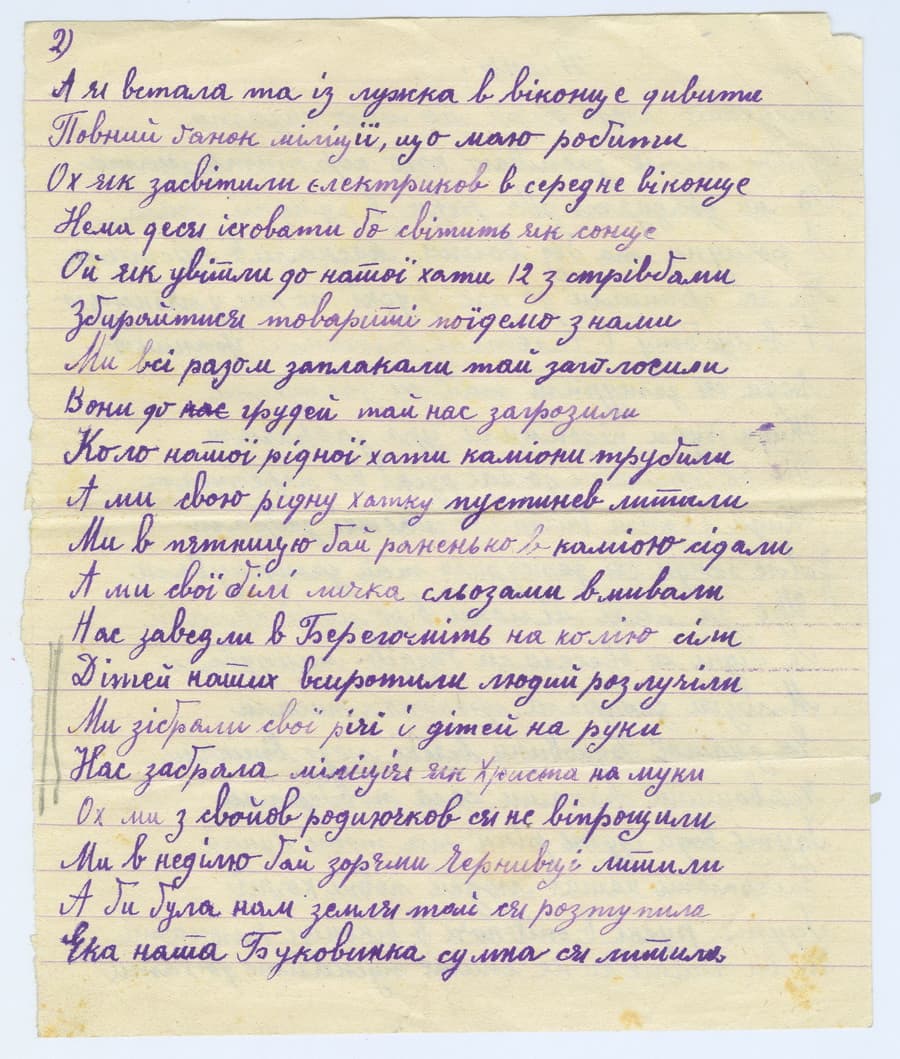 2)
А я встала та із лужка в віконце дивити
Повний банок міліції, що маю робити
Ох як засвітили єлектриков в середне віконце
Нема десь ісховати бо світить як сонце
Ой як увітли до натої хати 12 з стрівбами
Збирайтися товариті поїдемо з нами
Ми всі разом заплакали тай заголосили
Вони до грудей тай нас загрозили
Коло натої рідної хати каміони трубили
А ми свою рідну хатку пустинев литили
Ми в пятницю бай раненько в каміою сідали
А ми свої білі личка сльозами вмивали
Нас завезли в Берегомить на колію сіли
Дітей натих всиротили людий розлучіли
Ми зібрали свої річі і дітей на руки
Нас забрала міліція як Христа на муки
Ох ми з свойов родиночков ся не віпрощили
Ми в неділю бай зорями Чернивці литили
А би була нам земля тай ся розтупила
Яка ната Буковинка сумна ся литила